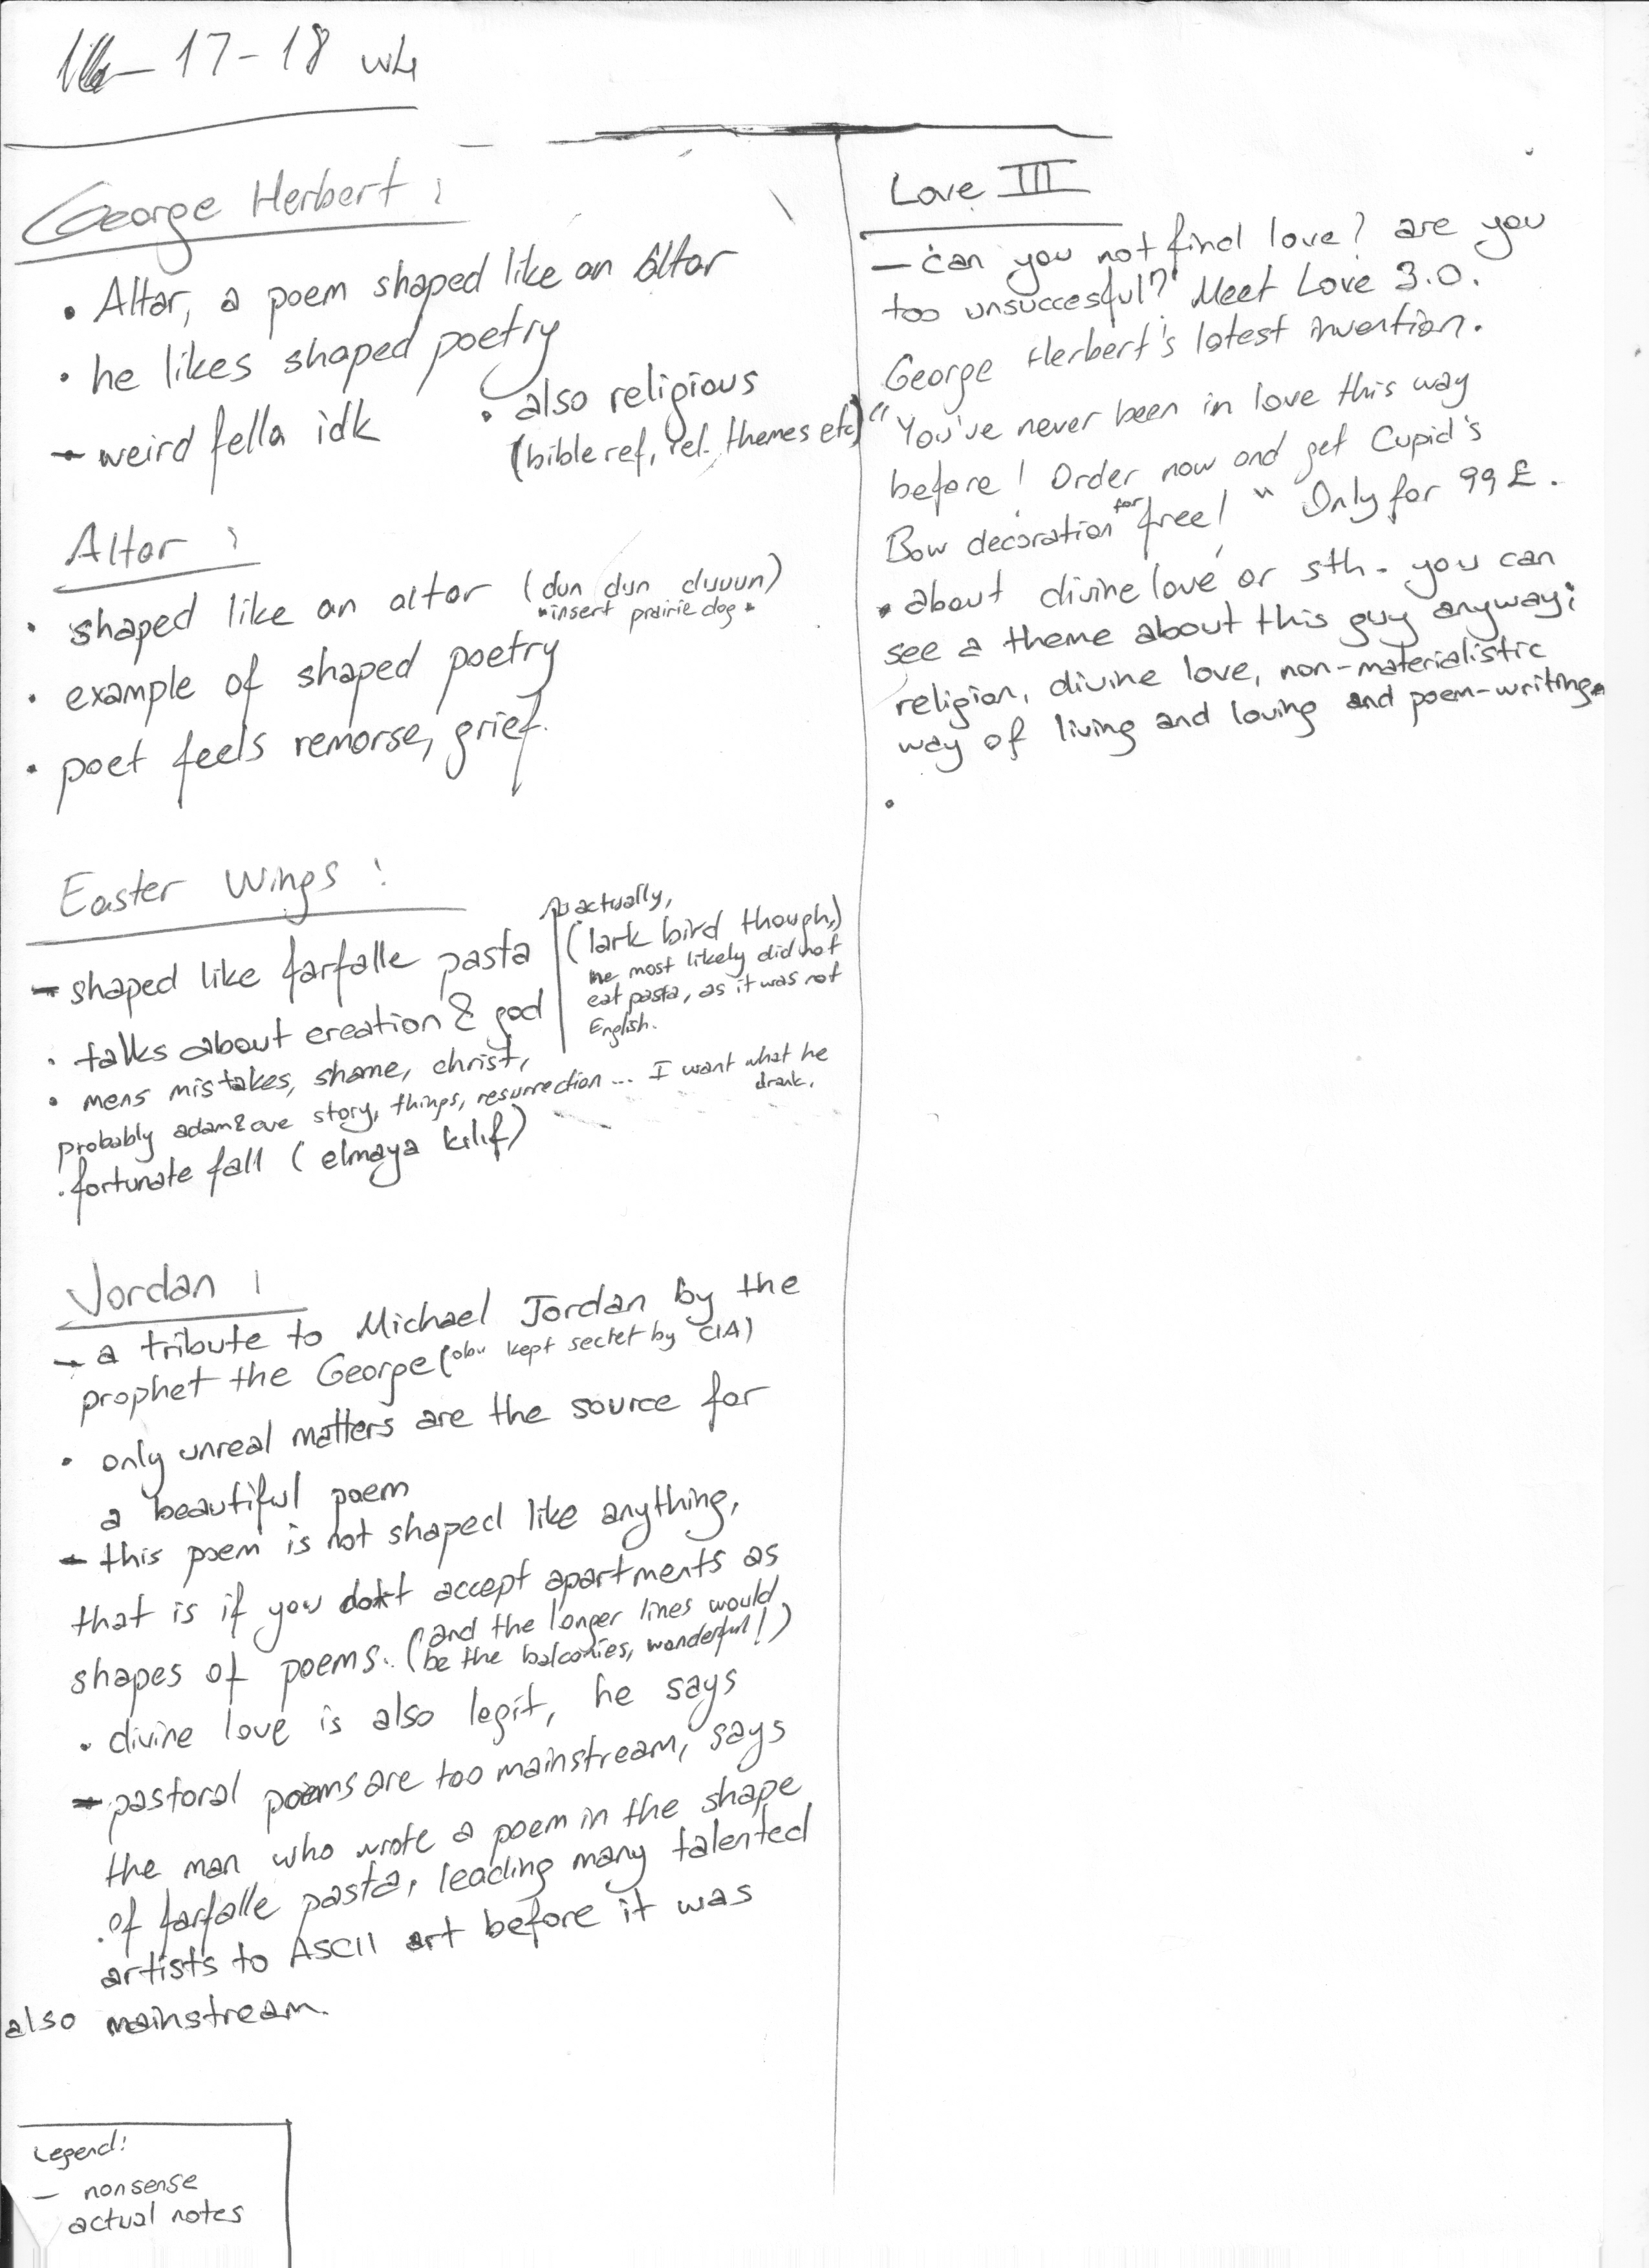 17-18 wk
George Herbert:
• Altar, a poem shaped like an Altar
• he likes shaped poetry
- weird fella idk
• also religious
(bible ref, rel. themes etc)
Altar:
• shaped like an altar (dun dun duuun)
*insert prairie dog*
• example of shaped poetry
• poet feels remorse, grief.
Easter Wings:
- shaped like farfalle pasta
actually,
(lark bird though,)
he most likely did not
eat pasta, as it was not
English.
• talks about creation & god
• mens mistakes, shame, christ,
probably adam&eve story, things, resurrection... I want what he
drank.
• fortunate fall (elmaya kılıf)
Jordan:
- a tribute to Michael Jordan by the
prophet the George (obv kept secret by CIA)
• only unreal matters are the source for
a beautiful poem
- this poem is not shaped like anything,
that is if you don't accept apartments as
shapes of poems. (and the longer lines would
be the balconies, wonderful!)
• divine love is also legit, he says
- pastoral poems are too mainstream, says
the man who wrote a poem in the shape
of farfalle pasta, leading many talented
artists to ASCII art before it was
also mainstream.
Legend:
- nonsense
actual notes
Love III
- can you not find love? are you
too unsuccesful? Meet Love 3.0.
George Herbert's latest invention.
"You've never been in love this way
before! Order now and get Cupid's
Bow decoration for free!" Only for 99£.
• about divine love or sth. you can
see a theme about this guy anyway:
religion, divine love, non-materialistic
way of living and loving and poem-writing.
•